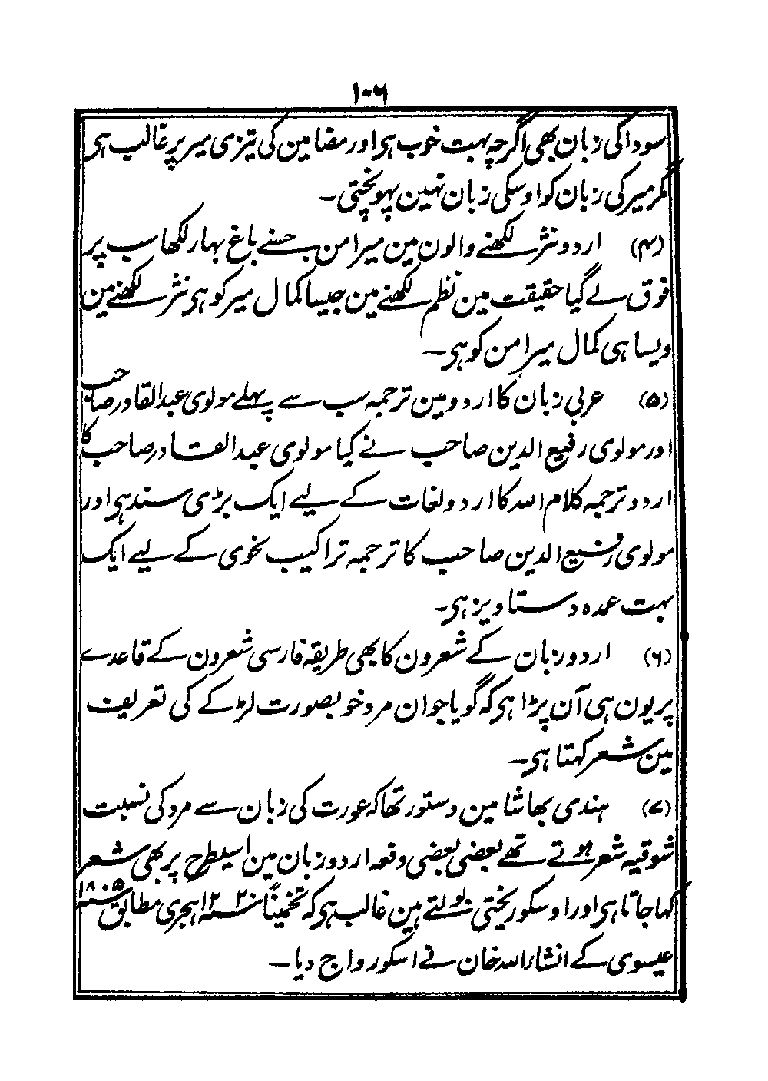 ۱۰۶
سودا کی زبان بھی اگرچہ بہت خوب ہی اور مضامین کی تیزی میر پر غالب ہی
مگر میر کی زبان کو اوسکی زبان نہین پہونچتی۔
(۴) اردو نثر لکھنے والون مین میرامن جسنے باغ بہار لکھا سب پر
فوق لے گیا حقیقت مین نظم لکھنے مین جیسا کمال میر کو ہی نثر لکھنے مین
ویسا ہی کمال میرامن کو ہی۔
(۵) عربی زبان کا اردو مین ترجمہ سب سے پہلے مولوی عبدالقادر صاحب
اور مولوی رفیع الدین صاحب نے کیا مولوی عبدالقادر صاحب کا
اردو ترجمہ کلام اللہ کا اردو لغات کے لیے ایک بڑی سند ہی اور
مولوی رفیع الدین صاحب کا ترجمہ تراکیب نحوی کے لیے ایک
بہت عمدہ دستاویز ہی۔
(۶) اردو زبان کے شعرون کا بھی طریقہ فارسی شعرون کے قاعدے
پر یون ہی آن پڑا ہی کہ گویا جوان مرد خوبصورت لڑکے کی تعریف
مین شعر کہتا ہی۔
(۷) ہندی بھاشا مین دستور تھا کہ عورت کی زبان سے مرد کی نسبت
شوقیہ شعر ہوتے تھے بعضی بعضی دفعہ اردو زبان مین اسیطرح پر بھی شعر
کہا جاتا ہی اور اوسکو ریختی بولتے ہین غالب ہی کہ تخمیناً سنہ ۱۲۲۰ ہجری مطابق سنہ ۱۸۰۵
عیسوی کے انشاءاللہ خان نے اسکو رواج دیا۔